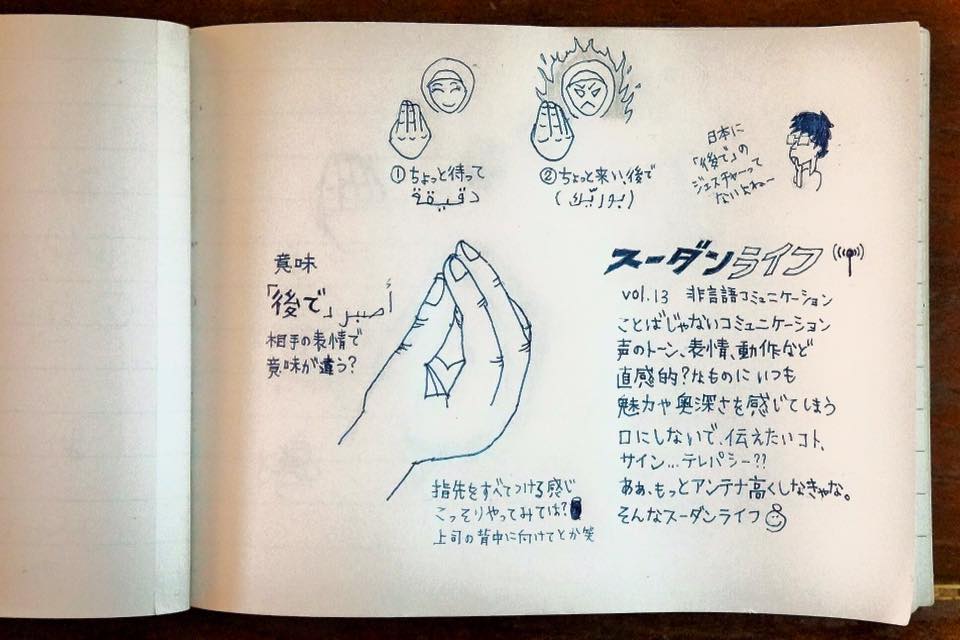 ①ちょっと待って
دقيقة
②ちょっと来い、後で
(بوريّك)
日本に
「後で」の
ジェスチャーって
ないよねー
意味
「後で」أصبر
相手の表情で
意味が違う?
指先をすべてつける感じ
こっそりやってみては?
上司の背中に付けてとか笑
スーダンライフ
vol.13 非言語コミュニケーション
ことばじゃないコミュニケーション
声のトーン、表情、動作など
直感的?なものにいつも
魅力や奥深さを感じてしまう
口にしないで、伝えたいコト、
サイン...テレパシー??
ああ、もっとアンテナ高くしなきゃな。
そんなスーダンライフ